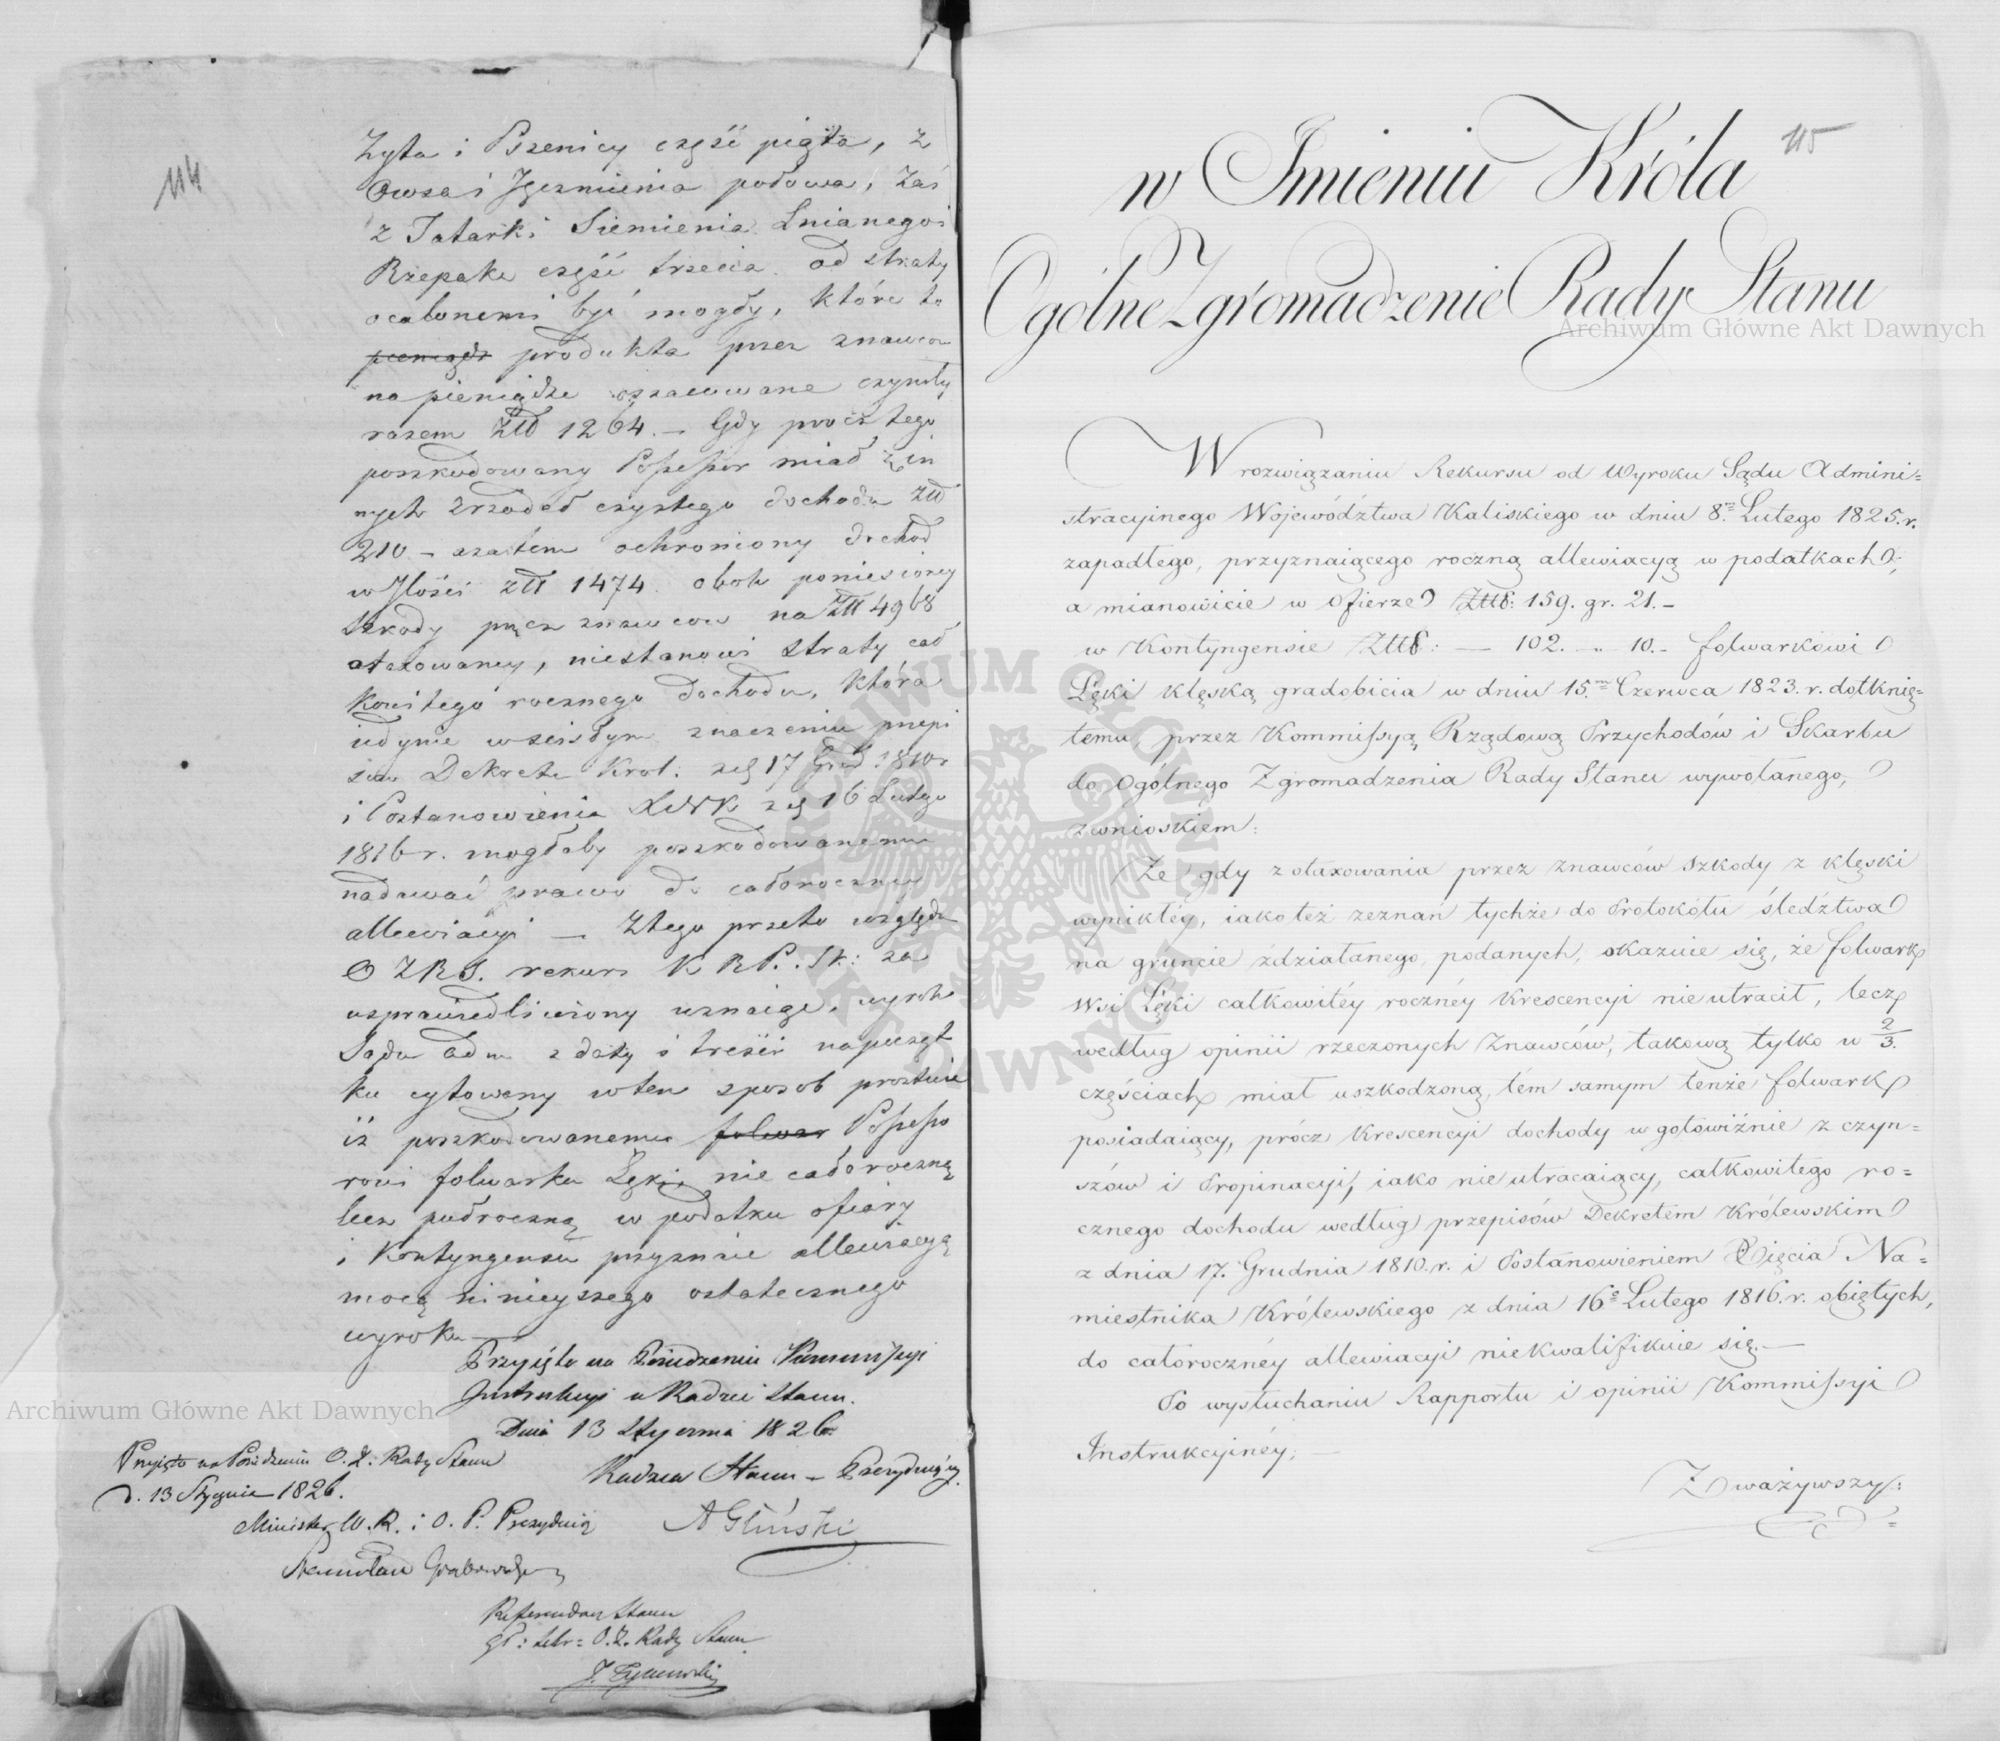 114
Zyta i Pszenicy część piąta, z
Owsa i Jęczmienia połowa, zaś
z Tatarki Siemienia Lnianego i
Rzepaku część trzecia od straty
ocalonemi być mogły, które to
pieniądz produkta przez znawców
na pieniądze oszacowane czyniły
razem Złł 1264. — Gdy procz tego
poszkodowany Possessor miał z in
nych zrzodeł czystego dochodu złł
210 – zatem ochroniony dochod
w Ilości złł 1474 obok poniesioney
szkody przez znawcow na Złł 4968
otaxowaney, niestanowi straty cał
kowitego rocznego dochodu, która
iedynie w scisłym znaczeniu przepi
sow Dekretu Krol: z d 17 Grud: 1810 r
i Postanowienia XNK z d 16 Lutego
1816 r. mogłaby poszkodowanemu
nadawać prawo do całoroczney
allewiacyi — Ztego przeto względu
O Z R S. rekurs K R P. Sk: za
usprawiedliwiony uznaige, wyrok
Sądu adm z daty i treści napocząt
ku cytowany w ten sposob prostuie
iż poszkodowanemu folwar Possesso
rowi folwarku Łęki nie całoroczną
lecz pułroczną w podatku ofiary
i Kontyngensu przyznaie allewiacyą
mocą ninieyszego ostatecznego
wyroku —
Przyięto na Posiedzeniu Kommissyi
Instrukcyi u Radzie Stanu.
Dnia 13 Stycznia 1826 r.
Przyięto na Posiedzeniu O. Z. Rady Stanu
d. 13 Stycznia 1826.
Radca Stanu – Prezyduiący
Minister W. R. i O. P. Prezyduią
A Gliński
Stanisław Grabowski
Referendarz Stanu
Sekr: O. Z. Rady Stanu
115
w Imieniu Króla
Ogólne Zgromadzenie Rady Stanu
W rozwiązaniu Rekursu od Wyroku Sądu Admini=
stracyinego Województwa Kaliskiego w dniu 8.m Lutego 1825. r.
zapadłego, przyznaiącego roczną allewiacyą w podatkach,
a mianowicie w Ofierze Złł: 159. gr. 21. –
w Kontyngensie Złł: — 102. — „ — 10. – folwarkowi
Łęki klęską gradobicia w dniu 15.m Czerwca 1823. r. dotknię=
temu, przez Kommissyą Rządową Przychodów i Skarbu
do Ogólnego Zgromadzenia Rady Stanu wywołanego,
zwnioskiem:
Że gdy z otaxowania przez znawców szkody z klęski
wynikłéy, iako też zeznań tychże do Protokółu śledztwa
na gruncie zdziałanego, podanych, okazuie się, że folwark
Wsi Łęki całkowitéy rocznéy krescencyi nieutracił, lecz
według opinii rzeczonych Znawców, takową tylko w 2/3.
częściach miał uszkodzoną, tém samym tenże folwark
posiadaiący, prócz krescencyi dochody w gotowiźnie z czyn=
szów i Propinacyi, iako nieutracaiący, całkowitego ro=
cznego dochodu według przepisów Dekretem Królewskim
z dnia 17. Grudnia 1810. r. i Postanowieniem Xięcia Na=
miestnika Królewskiego z dnia 16go Lutego 1816. r. obiętych,
do całorocznéy allewiacyi niekwalifikuie się. —
Po wysłuchaniu Rapportu i opinii Kommissyi
Instrukcyinéy; —
Zważywszy:
Archiwum Główne Akt Dawnych
Archiwum Główne Akt Dawnych
ARCHIWUM GŁÓWNE AKT DAWNYCH